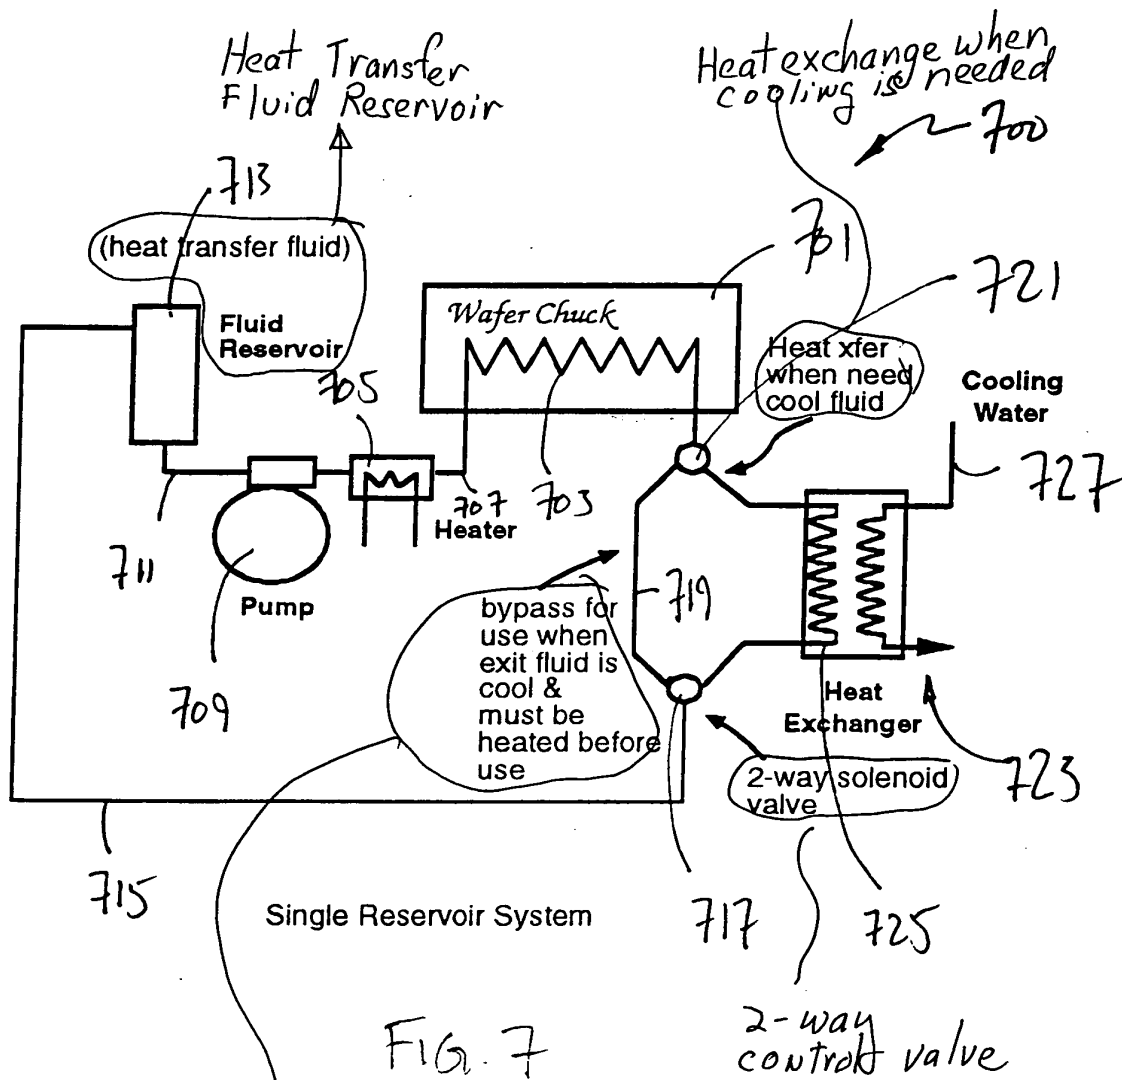 Heat Transfer
Fluid Reservoir
Heat exchange when
cooling is needed
700
713
(heat transfer fluid)
701
721
Wafer Chuck
Fluid
Reservoir
705
Heat xfer
when need
cool fluid
Cooling
Water
727
707
703
Heater
711
Pump
719
bypass for
use when
exit fluid is
cool &
must be
heated before
use
709
Heat
Exchanger
723
2-way solenoid
valve
715
Single Reservoir System
717
725
FIG. 7
2-way
control valve